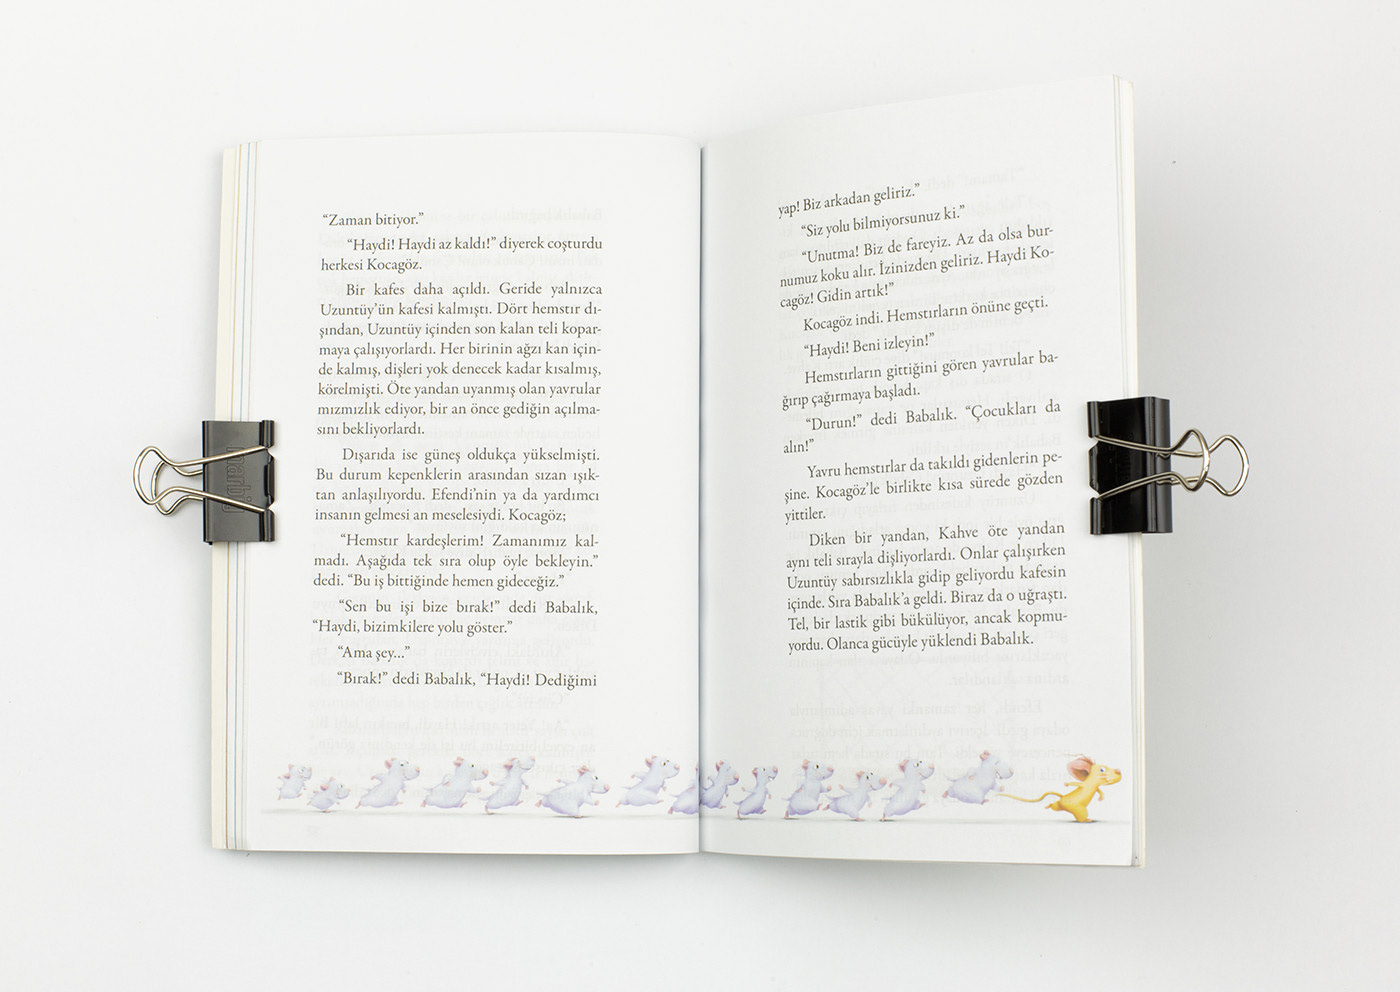 “Zaman bitiyor.”
“Haydi! Haydi az kaldı!” diyerek coşturdu
herkesi Kocagöz.
Bir kafes daha açıldı. Geride yalnızca
Uzuntüy’ün kafesi kalmıştı. Dört hemstır dı-
şından, Uzuntüy içinden son kalan teli kopar-
maya çalışıyorlardı. Her birinin ağzı kan için-
de kalmış, dişleri yok denecek kadar kısalmış,
körelmişti. Öte yandan uyanmış olan yavrular
mızmızlık ediyor, bir an önce gediğin açılma-
sını bekliyorlardı.
Dışarıda ise güneş oldukça yükselmişti.
Bu durum kepenklerin arasından sızan ışık-
tan anlaşılıyordu. Efendi’nin ya da yardımcı
insanın gelmesi an meselesiydi. Kocagöz;
“Hemstır kardeşlerim! Zamanımız kal-
madı. Aşağıda tek sıra olup öyle bekleyin.”
dedi. “Bu iş bittiğinde hemen gideceğiz.”
“Sen bu işi bize bırak!” dedi Babalık,
“Haydi, bizimkilere yolu göster.”
“Ama şey...”
“Bırak!” dedi Babalık, “Haydi! Dediğimi
yap! Biz arkadan geliriz.”
“Siz yolu bilmiyorsunuz ki.”
“Unutma! Biz de fareyiz. Az da olsa bur-
numuz koku alır. İzinizden geliriz. Haydi Ko-
cagöz! Gidin artık!”
Kocagöz indi. Hemstırların önüne geçti.
“Haydi! Beni izleyin!”
Hemstırların gittiğini gören yavrular ba-
ğırıp çağırmaya başladı.
“Durun!” dedi Babalık. “Çocukları da
alın!”
Yavru hemstırlar da takıldı gidenlerin pe-
şine. Kocagöz’le birlikte kısa sürede gözden
yittiler.
Diken bir yandan, Kahve öte yandan
aynı teli sırayla dişliyorlardı. Onlar çalışırken
Uzuntüy sabırsızlıkla gidip geliyordu kafesin
içinde. Sıra Babalık’a geldi. Biraz da o uğraştı.
Tel, bir lastik gibi bükülüyor, ancak kopmu-
yordu. Olanca gücüyle yüklendi Babalık.